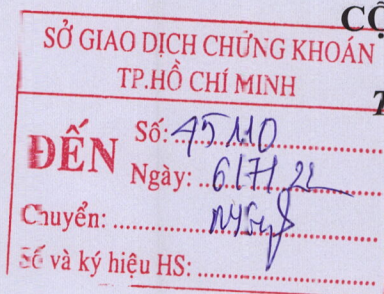 CỘ
SỞ GIAO DỊCH CHỨNG KHOÁN
TP.HỒ CHÍ MINH
T
ĐẾN
Số: 45110
Ngày: 6/7/22
Chuyển:
Số và ký hiệu HS: